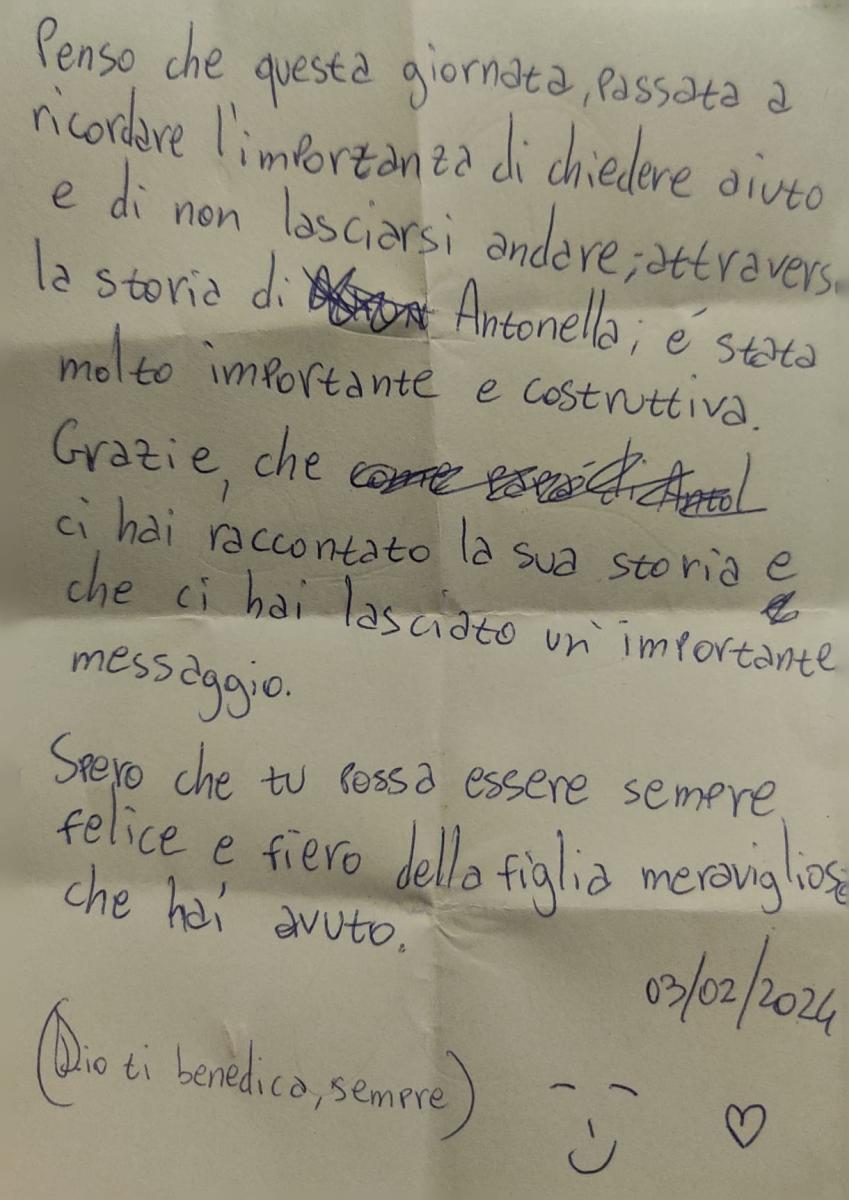 Penso che questa giornata, passata a
ricordare l'importanza di chiedere aiuto
e di non lasciarsi andare; attravers
la storia di Antonella; é stata
molto importante e costruttiva.
Grazie, che
ci hai raccontato la sua storia e
che ci hai lasciato un'importante
messaggio.
Spero che tu possa essere sempre
felice e fiero della figlia meravigliosa
che hai avuto.
03/02/2024
(Dio ti benedica, sempre)